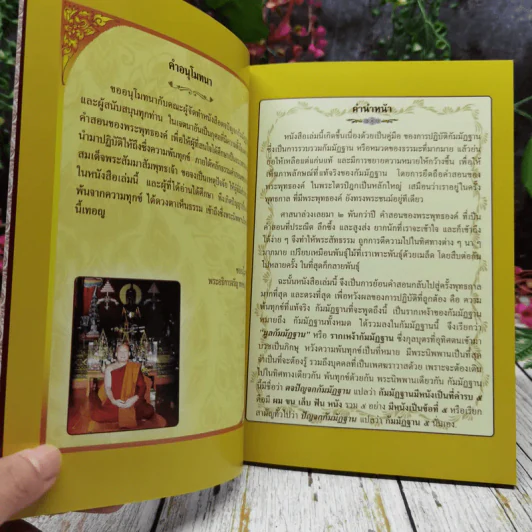 คำอนุโมทนา
ขออนุโมทนากับคณะผู้จัดทำหนังสือ
และผู้สนับสนุนทุกท่าน ในเจตนาอันเป็นกุศล
คำสอนของพระพุทธองค์ เพื่อให้ผู้ที่สนใจได้
นำมาปฏิบัติให้ถึงซึ่งความพ้นทุกข์
สมเด็จพระสัมมาสัมพุทธเจ้า ขอจงเป็นเหตุปัจจัย
ในหนังสือเล่มนี้ และผู้ที่ได้อ่านได้ศึกษา
พ้นจากความทุกข์ ได้ดวงตาเห็นธรรม
นี้เทอญ
คำนำหน้า
หนังสือเล่มนี้เกิดขึ้นเนื่องด้วยเป็นคู่มือ ของการปฏิบัติกัมมัฏฐาน
ซึ่งเป็นการรวบรวมกัมมัฏฐาน หรือหมวดของธรรมะที่มากมาย แล้วย่น
ย่อให้เหลือแต่แก่นแท้ และมีการขยายความหมายให้กว้างขึ้น เพื่อให้
เห็นภาพลักษณ์ที่แท้จริงของกัมมัฏฐาน โดยการยึดถือคำสอนของ
พระพุทธองค์ ในพระไตรปิฎกเป็นหลักใหญ่ เสมือนว่าเราอยู่ในครั้ง
พุทธกาล ที่มีพระพุทธองค์ ยังทรงพระชนม์อยู่ทีเดียว
ศาสนาล่วงเลยมา ๒ พันกว่าปี คำสอนของพระพุทธองค์ ที่เป็น
คำสอนที่ประณีต ลึกซึ้ง และสูงส่ง ยากนักที่เราจะเข้าใจ และก็เข้าถึง
ได้ง่าย ๆ จึงทำให้พระสัทธรรม ถูกการตีความไปในทิศทางต่าง ๆ นา ๆ
มากมาย เปรียบเหมือนพันธุ์ไม้ที่เราเพาะพันธุ์ด้วยเมล็ด โดยสืบต่อกัน
ไปหลายครั้ง ในที่สุดก็กลายพันธุ์
ฉะนั้นหนังสือเล่มนี้ จึงเป็นการย้อนคำสอนกลับไปสู่ครั้งพุทธกาล
มากที่สุด และตรงที่สุด เพื่อหวังผลของการปฏิบัติที่ถูกต้อง คือ ความ
พ้นทุกข์ที่แท้จริง กัมมัฏฐานที่จะพูดถึงนี้ เป็นรากเหง้าของกัมมัฏฐาน
หมายถึง กัมมัฏฐานทั้งหมด ได้รวมลงในกัมมัฏฐานนี้ จึงเรียกว่า
"มูลกัมมัฏฐาน" หรือ รากเหง้ากัมมัฏฐาน ซึ่งกุลบุตรที่อุทิศตนเข้ามา
บวชเป็นภิกษุ หวังความพ้นทุกข์เป็นที่หมาย มีพระนิพพานเป็นที่สุด
เป็นที่จะต้องรู้ รวมถึงบุคคลที่เป็นเพศฆราวาสด้วย เพราะจะต้องเดิน
ไปในทิศทางเดียวกัน พ้นทุกข์ด้วยกัน พระนิพพานเดียวกัน กัมมัฏฐาน
นี้มีชื่อว่า ตจปัญจกกัมมัฏฐาน แปลว่า กัมมัฏฐานมีหนังเป็นที่คำรบ ๕
คือมี ผม ขน เล็บ ฟัน หนัง รวม ๕ อย่าง มีหนังเป็นข้อที่ ๕ หรือเรียก
สามัญทั่วไปว่า ปัญจกกัมมัฏฐาน แปลว่า กัมมัฏฐาน ๕ นั่นเอง